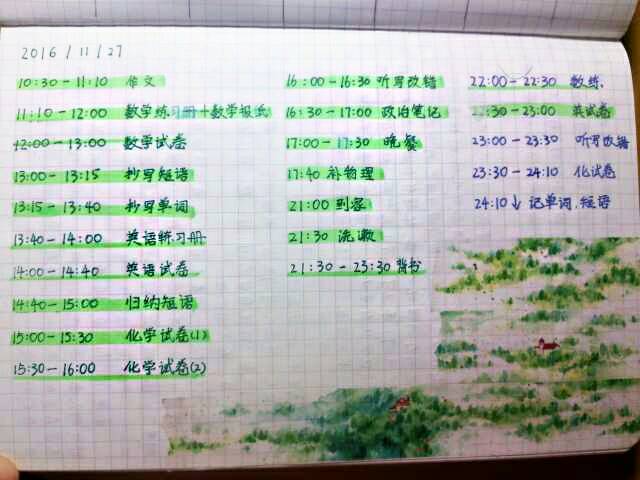 2016 / 11 / 27
10:30 - 11:10 作文
11:10 - 12:00 数学练习册+数学报纸
12:00 - 13:00 数学试卷
13:00 - 13:15 抄写短语
13:15 - 13:40 抄写单词
13:40 - 14:00 英语练习册
14:00 - 14:40 英语试卷
14:40 - 15:00 归纳短语
15:00 - 15:30 化学试卷(1)
15:30 - 16:00 化学试卷(2)
16:00 - 16:30 听写改错
16:30 - 17:00 政治笔记
17:00 - 17:30 晚餐
17:40 补物理
21:00 到家
21:30 洗漱
21:30 - 23:30 背书
22:00 - 22:30 数练.
22:30 - 23:00 英试卷
23:00 - 23:30 听写改错
23:30 - 24:10 化试卷
24:10 ↓ 记单词.短语